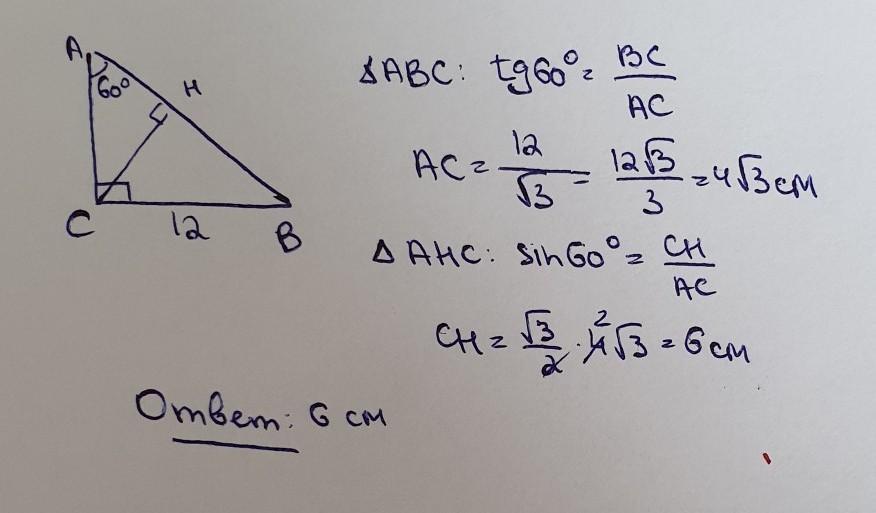 A
60°
H
C
12
B
ΔABC: tg60° = BC/AC
AC = 12/√3 = 12√3/3 = 4√3 см
Δ AHC: sin60° = CH/AC
CH = √3/2 · 4 2 √3 = 6 см
Ответ: 6 см